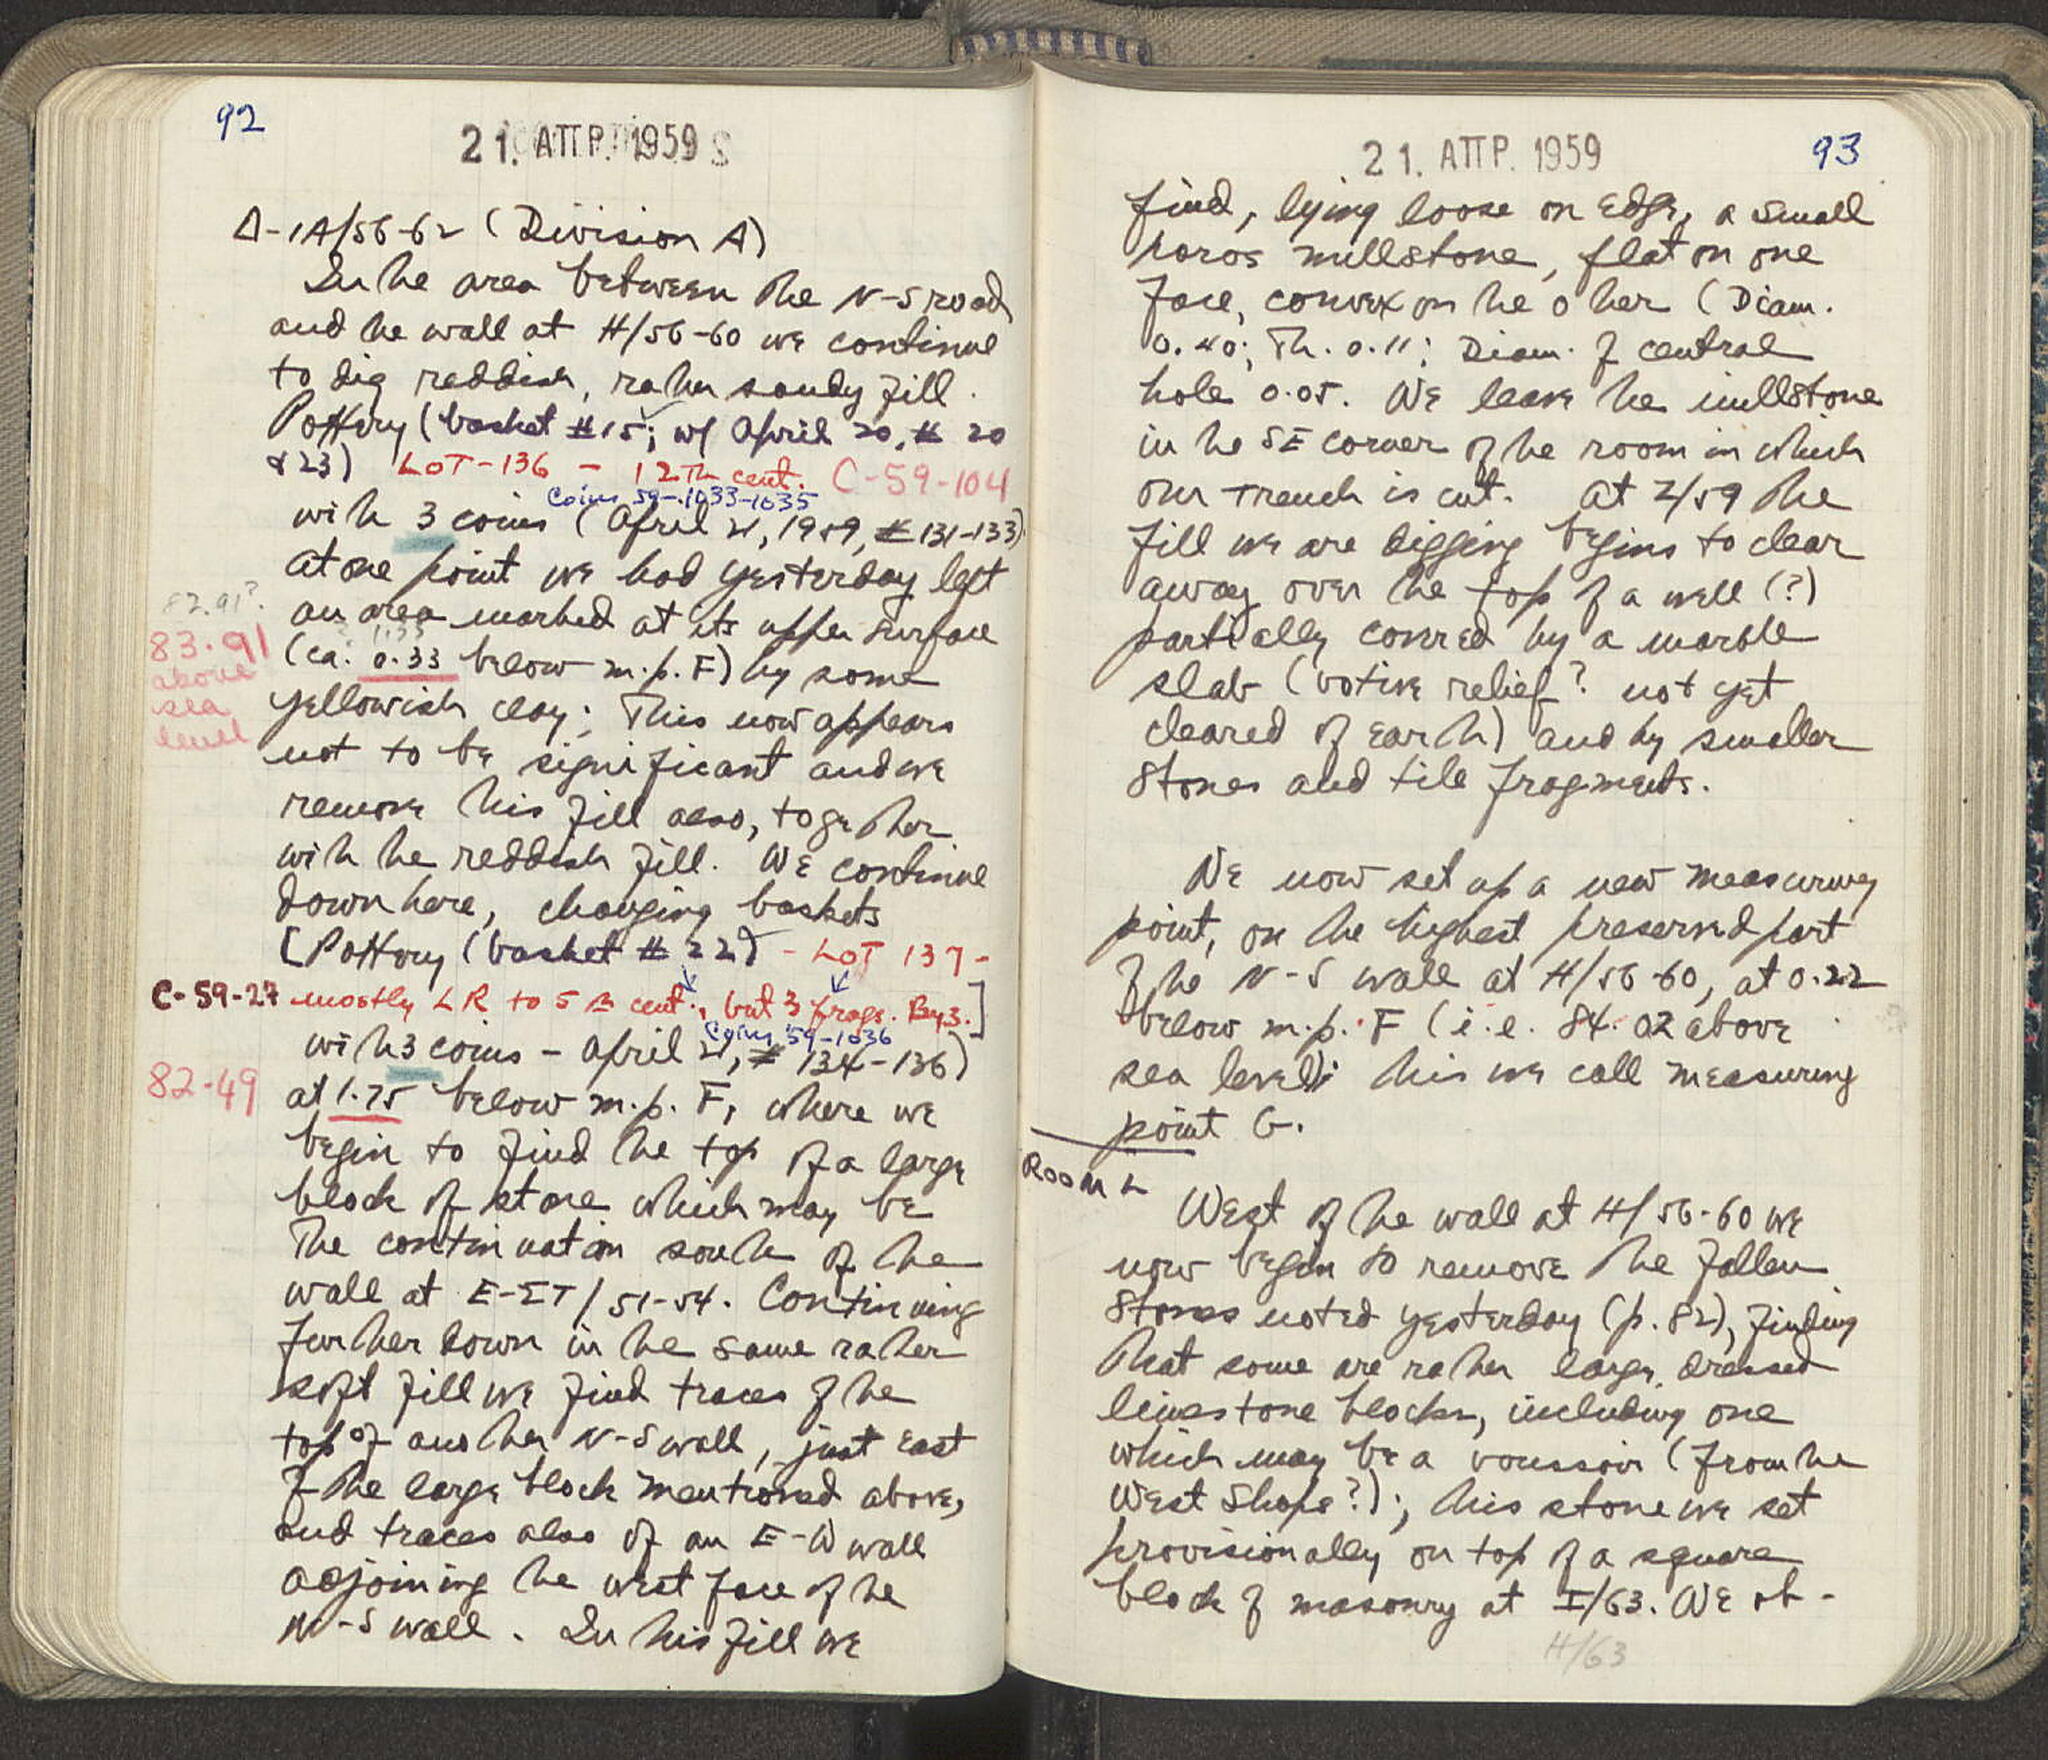 92
21. ΑΠΡ. 1959
Δ-1A/56-62 (Division A)
In the area between the N-S road
and the wall at H/56-60 we continue
to dig reddish, rather sandy fill.
Pottery (basket #15; w/ April 20, # 20
& 23) LOT-136 - 12th cent. C-59-104
Coins 59-1033-1035
with 3 coins (April 21, 1959, # 131-133)
At one point we had yesterday left
82.91?
an area marked at its upper surface
1.33
83.91 above sea level
(ca. 0.33 below m.p. F) by some
yellowish clay; this now appears
not to be significant and we
remove this fill also, together
with the reddish fill. We continue
down here, changing baskets
[Pottery (basket # 22) - LOT 137 -
C-59-27 mostly LR to 5th cent., but 3 frags. Byz.]
Coins 59-1036
with 3 coins - April 21, # 134-136)
82-49
at 1.75 below m.p. F, where we
begin to find the top of a large
block of stone which may be
the continuation south of the
wall at E-ΣΤ/51-54. Continuing
further down in the same rather
soft fill we find traces of the
top of another N-S wall, just east
of the large block mentioned above,
and traces also of an E-W wall
adjoining the west face of the
N-S wall. In this fill we
21. ΑΠΡ. 1959
93
find, lying loose on edge, a small
poros millstone, flat on one
face, convex on the other (Diam.
0.40; Th. 0.11; Diam. of central
hole 0.05. We leave the millstone
in the SE corner of the room in which
our trench is cut. At Z/59 the
fill we are digging begins to clear
away over the top of a well (?)
partially covered by a marble
slab (votive relief? not yet
cleared of earth) and by smaller
stones and tile fragments.
We now set up a new measuring
point, on the highest preserved part
of the N-S wall at H/56-60, at 0.22
below m.p. F (i.e. 84.02 above
sea level); this we call measuring
point G.
ROOM L
West of the wall at H/56-60 we
now begin to remove the fallen
stones noted yesterday (p. 82), finding
that some are rather large dressed
limestone blocks, including one
which may be a voussoir (from the
West Shops?); this stone we set
provisionally on top of a square
block of masonry at I/63. We ob-
H/63